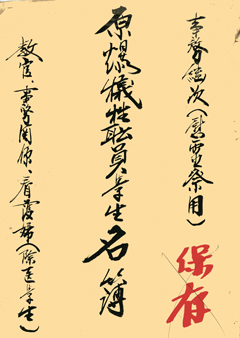 事務継次(慰霊祭用)
保存
原爆犠牲職員学生名簿
教官、事務関係、看護婦(除医学生)